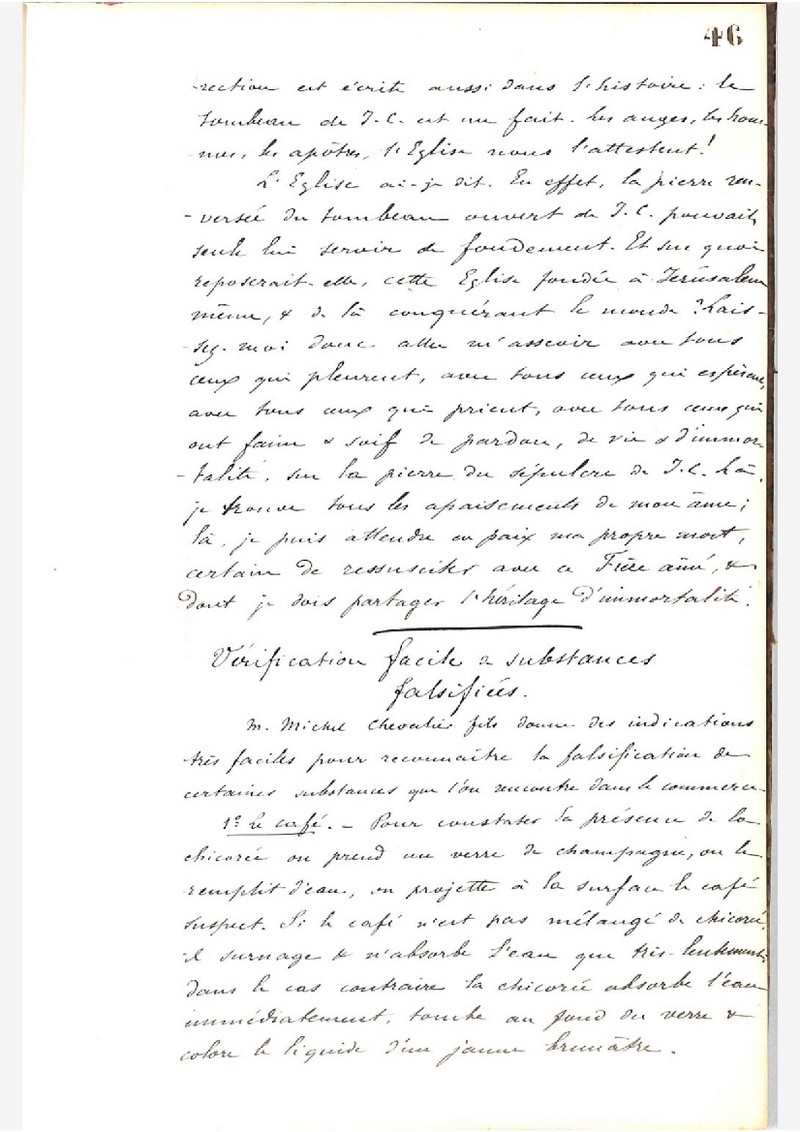 46
-rection est écrite aussi dans l'histoire : le
tombeau de J.-C. est un fait. Les anges, les hom-
-mes, les apôtres, l'Eglise nous l'attestent !
L'Eglise ai-je dit. En effet, la pierre ren-
-versée du tombeau ouvert de J.C. pouvait
seule lui servir de fondement. Et sur quoi
reposerait-elle, cette Eglise fondée à Jérusalem
même, & de là conquérant le monde ? Lais-
-sez-moi donc aller m'asseoir avec tous
ceux qui pleurent, avec tous ceux qui espèrent,
avec tous ceux qui prient, avec tous ceux qui
ont faim & soif de pardon, de vie & d'immor-
-talité, sur la pierre du sépulcre de J.-C. Là,
je trouve tous les apaisements de mon âme ;
là, je puis attendre en paix ma propre mort,
certain de ressusciter avec ce Frère aîné, &
dont je dois partager l'héritage d'immortalité.
Vérification facile de substances
falsifiées.
M. Michel Chevalier fils donne des indications
très faciles pour reconnaître la falsification de
certaines substances que l'on rencontre dans le commerce.
1º Le café. - Pour constater la présence de la
chicorée on prend un verre de champagne, on le
remplit d'eau, on projette à la surface le café
suspect. Si le café n'est pas mélangé de chicorée,
il surnage & n'absorbe l'eau que très-lentement;
dans le cas contraire la chicorée absorbe l'eau
immédiatement, tombe au fond du verre &
colore le liquide d'un jaune brunâtre.